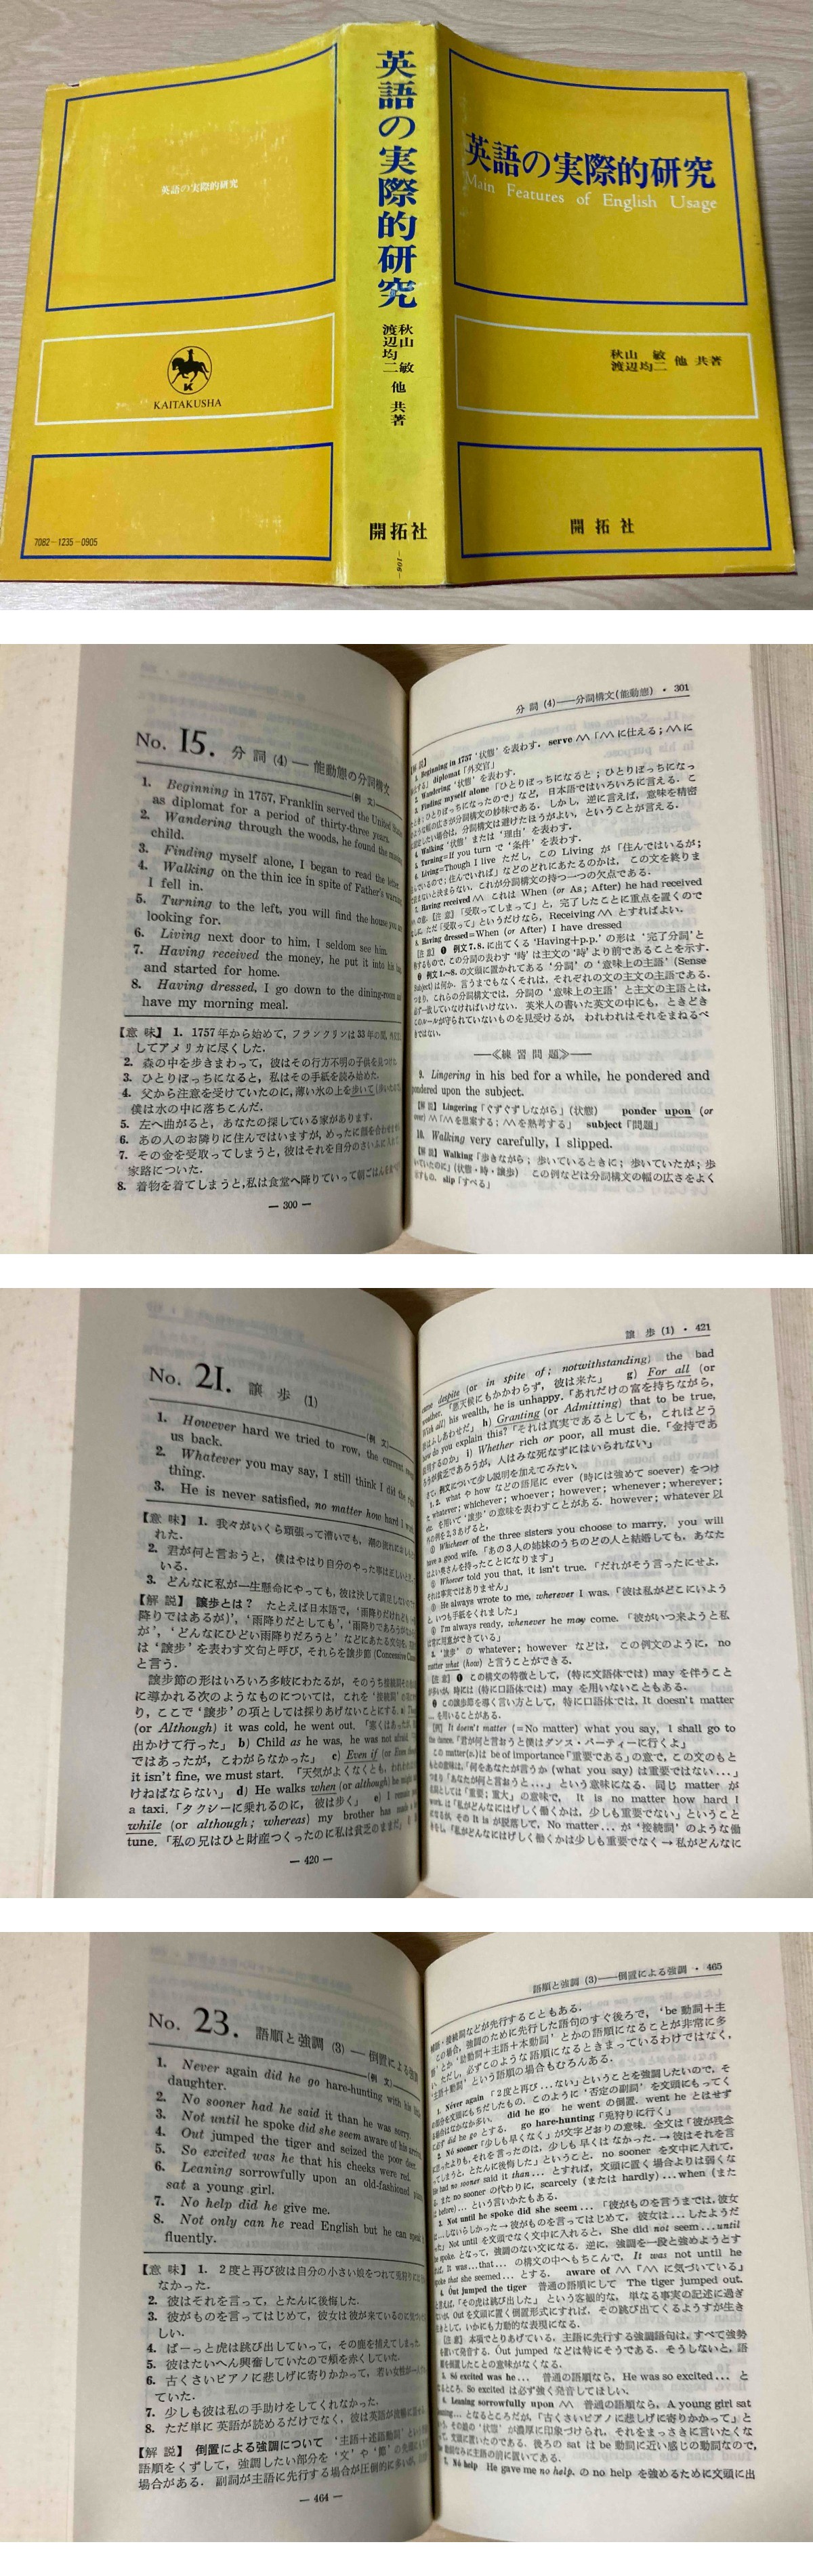 英語の実際的研究
KAITAKUSHA
7082-1235-0905
英語の実際的研究
秋山 敏
渡辺均二
他 共著
開拓社
英語の実際的研究
Main Features of English Usage
秋山 敏
渡辺均二 他 共著
開拓社
No. 15. 分詞 (4) — 能動態の分詞構文
(例 文)
1. Beginning in 1757, Franklin served the United
as diplomat for a period of thirty-three years.
2. Wandering through the woods, he found the
child.
3. Finding myself alone, I began to read the letter.
4. Walking on the thin ice in spite of Father's
I fell in.
5. Turning to the left, you will find the house you
looking for.
6. Living next door to him, I seldom see him.
7. Having received the money, he put it into his
and started for home.
8. Having dressed, I go down to the dining-room
have my morning meal.
【意 味】 1. 1757年から始めて, フランクリンは33年の間,
してアメリカに尽くした.
2. 森の中を歩きまわって, 彼はその行方不明の子供を見つけた
3. ひとりぼっちになると, 私はその手紙を読み始めた.
4. 父から注意を受けていたのに, 薄い氷の上を歩いて
僕は水の中に落ちこんだ.
5. 左へ曲がると, あなたの探している家があります.
6. あの人のお隣りに住んではいますが, めったに顔を合わせ
7. その金を受取ってしまうと, 彼はそれを自分のさいふに入れて
家路についた.
8. 着物を着てしまうと, 私は食堂へ降りていって朝ごはんを
— 300 —
分詞 (4)——分詞構文(能動態) • 301
1. Beginning in 1757 '状態' を表わす. serve ∧∧「∧∧に仕える; ∧∧に
diplomat「外交官」
2. Wandering '状態' を表わす.
3. Finding myself alone「ひとりぼっちになると; ひとりぼっちになっ
ひとりぼっちになったので」など, 日本語ではいろいろに言える. こ
のような幅の広さが分詞構文の妙味である. しかし, 逆に言えば, 意味を精密
したい場合は, 分詞構文は避けたほうがよい, ということが言える.
4. Walking '状態' または '理由' を表わす.
5. Turning=If you turn で '条件' を表わす.
6. Living=Though I live ただし, この Living が「住んではいるが;
住んでいるので; 住んでいれば」などのどれにあたるのかは, この文を終りま
で読まないと決まらない. これが分詞構文の持つ一つの欠点である.
7. Having received ∧∧ これは When (or As; After) he had received
の意.【注意】「受取ってしまって」と, 完了したことに重点を置くので
ただ「受取って」というだけなら, Receiving ∧∧ とすればよい.
8. Having dressed=When (or After) I have dressed
【注意】 ❶ 例文7.8. に出てくる 'Having+p.p.' の形は '完了分詞' と
称するもので, この分詞の表わす '時' は主文の '時' より前であることを示す.
❷ 例文1.~8. の文頭に置かれてある '分詞' の '意味上の主語' (Sense
Subject) は何か. 言うまでもなくそれは, それぞれの文の主文の主語である.
つまり, これらの分詞構文では, 分詞の '意味上の主語' と主文の主語とは,
必ず一致していなければいけない. 英米人の書いた英文の中にも, ときどき
このルールが守られていないものを見受けるが, われわれはそれをまねるべ
きではない.
——《練習問題》——
9. Lingering in his bed for a while, he pondered and
pondered upon the subject.
【解説】 Lingering「ぐずぐずしながら」(状態) ponder upon (or
over) ∧∧「∧∧を思案する; ∧∧を熟考する」 subject「問題」
10. Walking very carefully, I slipped.
【解説】 Walking「歩きながら; 歩いているときに; 歩いていたが; 歩
いていたのに」(状態・時・譲歩) この例などは分詞構文の幅の広さをよく
示すもの. slip「すべる」
No. 21. 譲歩 (1)
(例 文)
1. However hard we tried to row, the current
us back.
2. Whatever you may say, I still think I did the right
thing.
3. He is never satisfied, no matter how hard I
【意 味】 1. 我々がいくら頑張って漕いでも, 潮の流れに
れた.
2. 君が何と言おうと, 僕はやはり自分のやった事は正しいと
いる.
3. どんなに私が一生懸命にやっても, 彼は決して満足しない
【解 説】 譲歩とは? たとえば日本語で, '雨降りだけれども',
降りではあるが)', '雨降りだとしても', '雨降りであろうが
が', 'どんなにひどい雨降りだろうと' などにあたる
は '譲歩' を表わす文句と呼び, それらを譲歩節
と言う.
譲歩節の形はいろいろ多岐にわたるが, そのうち接続詞
に導かれる次のようなものについては, これを '接続詞'
り, ここで '譲歩' の項としては採りあげないことにする. a)
(or Although) it was cold, he went out. 「寒くはあったが,
出かけて行った」 b) Child as he was, he was not afraid.
ではあったが, こわがらなかった」 c) Even if (or Even though)
it isn't fine, we must start. 「天気がよくなくとも, われわれは
けねばならない」 d) He walks when (or although) he might
a taxi. 「タクシーに乗れるのに, 彼は歩く」 e) I remain
while (or although; whereas) my brother has made a
tune. 「私の兄はひと財産つくったのに私は貧乏のままだ」
— 420 —
譲歩 (1) • 421
came despite (or in spite of; notwithstanding) the bad
weather. 「悪天候にもかかわらず, 彼は来た」 g) For all (or
With all) his wealth, he is unhappy. 「あれだけの富を持ちながら,
彼はふしあわせだ」 h) Granting (or Admitting) that to be true,
how do you explain this? 「それは真実であるとしても, これはどう
説明するのか」 i) Whether rich or poor, all must die. 「金持であ
ろうが貧乏であろうが, 人はみな死なずにはいられない」
さて, 例文について少し説明を加えてみたい.
1. 2. what や how などの語尾に ever (時には強めて soever) をつけ
た whatever; whichever; whoever; however; whenever; wherever;
etc. を用いて '譲歩' の意味を表わすことがある. however; whatever 以
外の例を2,3あげると,
① Whichever of the three sisters you choose to marry, you will
have a good wife. 「あの3人の姉妹のうちのどの人と結婚しても, あなた
はよい奥さんを持ったことになります」
② Whoever told you that, it isn't true. 「だれがそう言ったにせよ,
それは事実ではありません」
③ He always wrote to me, wherever I was. 「彼は私がどこにいよう
と, いつも手紙をくれました」
④ I'm always ready, whenever he may come. 「彼がいつ来ようと私
は常に用意ができている」
3. '譲歩' の whatever; however などは, この例文のように, no
matter what (how) と言うことができる.
【注意】 ❶ この構文の特徴として, (特に文語体では) may を伴うこと
が多いが, 時には (特に口語体では) may を用いないこともある.
❷ この譲歩節を導く言い方として, 特に口語体では, It doesn't matter
... を用いることがある.
【例】 It doesn't matter (=No matter) what you say, I shall go to
the dance. 「君が何と言おうと僕はダンス・パーティーに行くよ」
この matter(v.) は be of importance「重要である」の意で, この文のもと
もとの意味は, 「何をあなたが言うか (what you say) は重要ではない...」
つまり「あなたが何と言おうと...」という意味になる. 同じ matter が
名詞としては「重要; 重大」の意味で, It is no matter how hard I
work. は「私がどんなにはげしく働くかは, 少しも重要でない」ということ
になるが, その It is が脱落して, No matter... が '接続詞' のような働
きをし, 「私がどんなにはげしく働くかは少しも重要でなく→私がどんなに
No. 23. 語順と強調 (3) — 倒置による強調
(例 文)
1. Never again did he go hare-hunting with his little
daughter.
2. No sooner had he said it than he was sorry.
3. Not until he spoke did she seem aware of his
4. Out jumped the tiger and seized the poor deer.
5. So excited was he that his cheeks were red.
6. Leaning sorrowfully upon an old-fashioned piano,
sat a young girl.
7. No help did he give me.
8. Not only can he read English but he can speak
fluently.
【意 味】 1. 2度と再び彼は自分の小さい娘をつれて兎狩りに
なかった.
2. 彼はそれを言って, とたんに後悔した.
3. 彼がものを言ってはじめて, 彼女は彼が来ているのに気づいた
しい.
4. ぱーっと虎は跳び出していって, その鹿を捕えてしまった.
5. 彼はたいへん興奮していたので頬を赤くしていた.
6. 古くさいピアノに悲しげに寄りかかって, 若い女性が
ていた.
7. 少しも彼は私の手助けをしてくれなかった.
8. ただ単に英語が読めるだけでなく, 彼は英語が流暢に
【解 説】 倒置による強調について '主語+述語動詞'
語順をくずして, 強調したい部分を '文' や '節' の先頭に
場合がある. 副詞が主語に先行する場合が圧倒的に多いが,
— 464 —
語順と強調 (3)——倒置による強調 • 465
補語・接続詞などが先行することもある.
この場合, 強調のために先行した語句のすぐ後ろで, 'be 動詞+主
語' とか '助動詞+主語+本動詞' とかの語順になることが非常に多
い. ただし, 必ずこのような語順になるときまっているわけではなく,
'主語+動詞' という語順の場合もむろんある.
1. Never again「2度と再び...ない」ということを強調したいので, そ
の部分を文頭にもちだしたもの. このように '否定の副詞' を文頭にもってく
る場合はなかなか多い. did he go he went の倒置. went he とはせず
に必ず did he go とする. go hare-hunting「兎狩りに行く」
2. No sooner「少しも早くなく」が文字どおりの意味. 全文は「彼が残念
に思ったよりも, それを言ったのは, 少しも早くはなかった. → 彼はそれを言
ってしまうと, とたんに後悔した」ということ. no sooner を文中に入れて,
He had no sooner said it than... とすれば, 文頭に置く場合よりは弱くな
る. また no sooner の代わりに, scarcely (または hardly)...when (また
は before)... という言いかたもある.
3. Not until he spoke did she seem... 「彼がものを言うまでは, 彼女
は...しないらしかった → 彼がものを言ってはじめて, 彼女は...したようだ
った」 Not until を文頭でなく文中に入れると, She did not seem...until
he spoke. となって, 強調のない文になる. 逆に, 強調を一段と強めようとす
れば, It was...that... の構文の中へもちこんで, It was not until he
spoke that she seemed... とする. aware of ∧∧「∧∧に気づいている」
4. Out jumped the tiger 普通の語順にして The tiger jumped out.
と言えば, 「その虎は跳び出した」という客観的な, 単なる事実の記述に過ぎ
ないが, Out を文頭に置く倒置形式にすれば, その跳び出てくるようすが生き
生きとして, いかにも力動的な表現になる.
【注意】 本項でとりあげている, 主語に先行する強調語句は, すべて強勢
を置いて発音する. Óut jumped などは特にそうである. そうしないと, 語
順を倒置したことの意味がなくなる.
5. So excited was he... 普通の語順なら, He was so excited... と
なるところ. So excited は必ず強く発音してほしい.
6. Leaning sorrowfully upon ∧∧ 普通の語順なら, A young girl sat
leaning... となるところだが, 「古くさいピアノに悲しげに寄りかかって」と
いう, その娘の '状態' が濃厚に印象づけられ, それをまっさきに言いたくな
って, 文頭に置いたのである. 後ろの sat は be 動詞に近い感じの動詞なので,
be 動詞なみに主語の前に置いてある.
7. No help He gave me no help. の no help を強めるために文頭に出